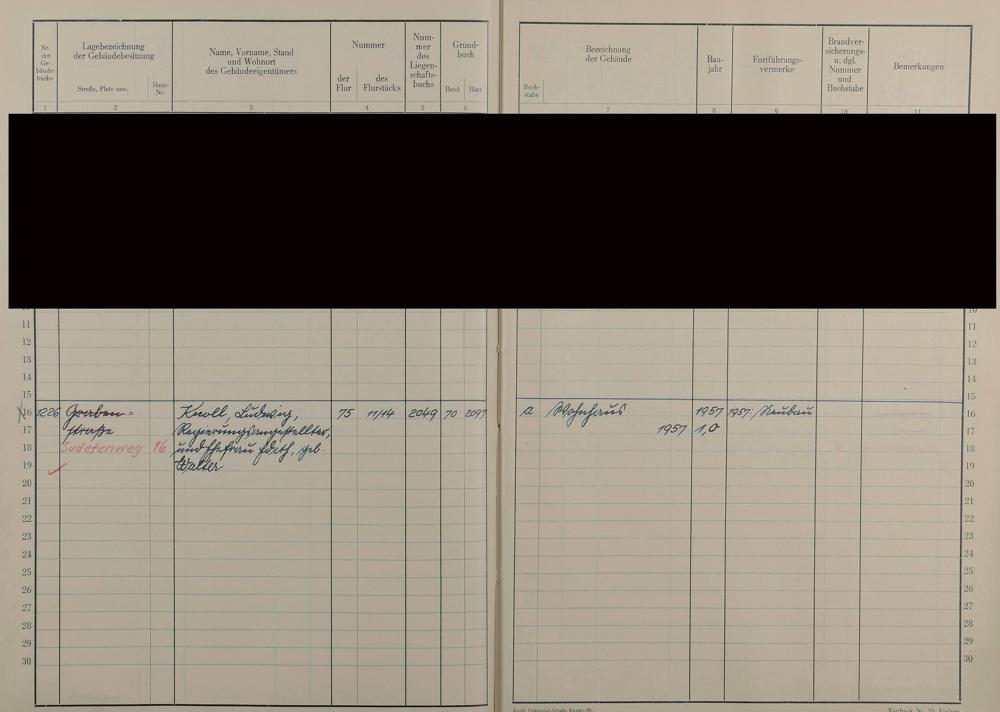 Nr. des Ge- bäude- buchs
Lagebezeichnung der Gebäudebesitzung
Straße, Platz usw.
Haus- Nr.
Name, Vorname, Stand und Wohnort des Gebäudeeigentümers
Nummer
der Flur
des Flurstücks
Num- mer des Liegen- schafts- buchs
Grund- buch
Band
Blatt
Buch- stabe
Bezeichnung der Gebäude
Bau- jahr
Fortführungs- vermerke
Brandver- sicherungs- u. dgl. Nummer und Buchstabe
Bemerkungen
1 2 3 4 5 6 7 8 9 10 11
10
11 11
12 12
13 13
14 14
15 15
16 1226 Graben= Knoll, Ludwig, 75 11/14 2049 70 2097 a Wohnhaus 1957 1957 Neubau 16
17 straße Regierungsangestellter, 1957 1,0 17
18 Sudetenweg 16 und Ehefrau Edith, geb. 18
19 Walter 19
20 20
21 21
22 22
23 23
24 24
25 25
26 26
27 27
28 28
29 29
30 30